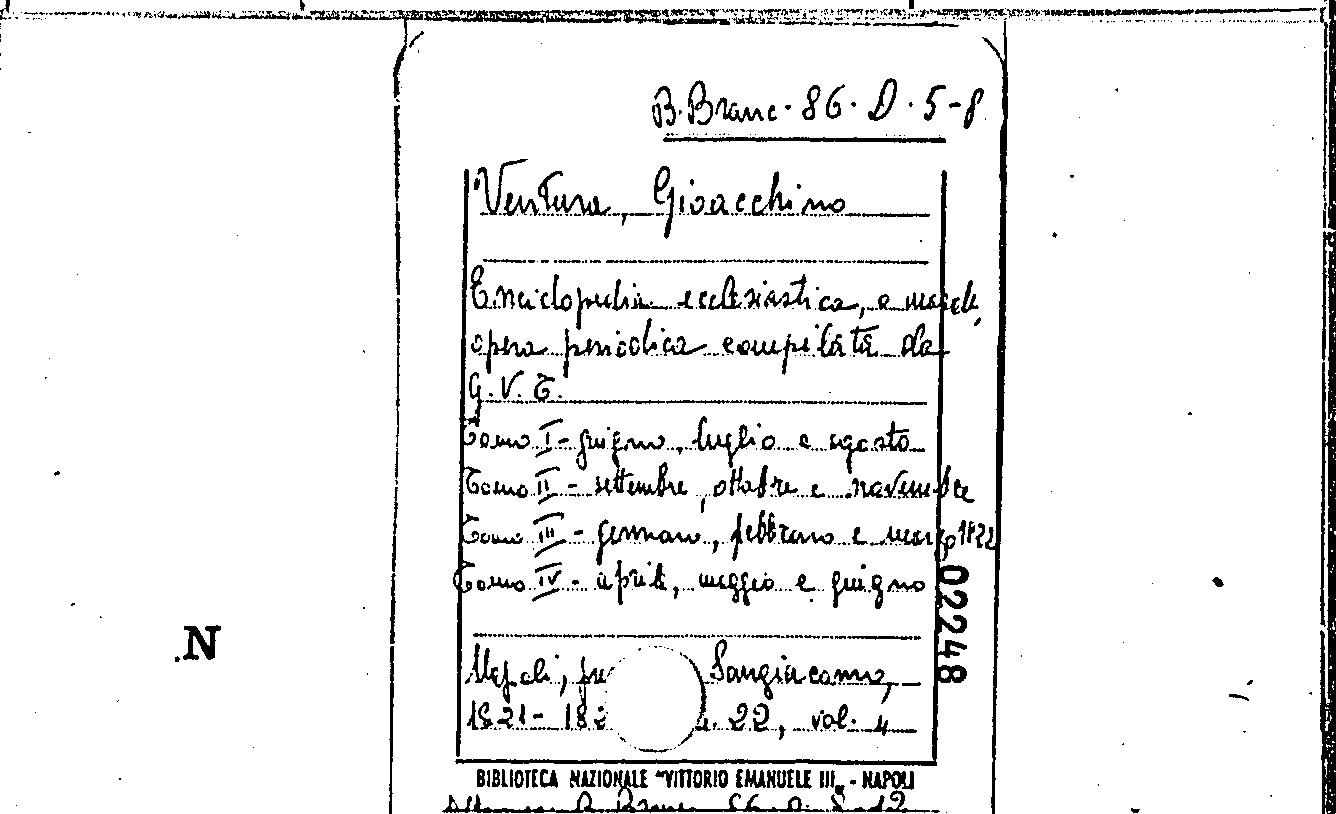 B. Branc. 86. D. 5-8
Ventura, Gioacchino
Enciclopedia ecclesiastica, e morale,
opera periodica compilata da
G. V. T.
Tomo I - giugno, luglio e agosto
Tomo II - settembre, ottobre e novembre
Tomo III - gennaio, febbraio e marzo 1822
Tomo IV - aprile, maggio e giugno
02248
N
Napoli, Sangiacomo,
1821- 22, vol. 4
BIBLIOTECA NAZIONALE "VITTORIO EMANUELE III„ - NAPOLI